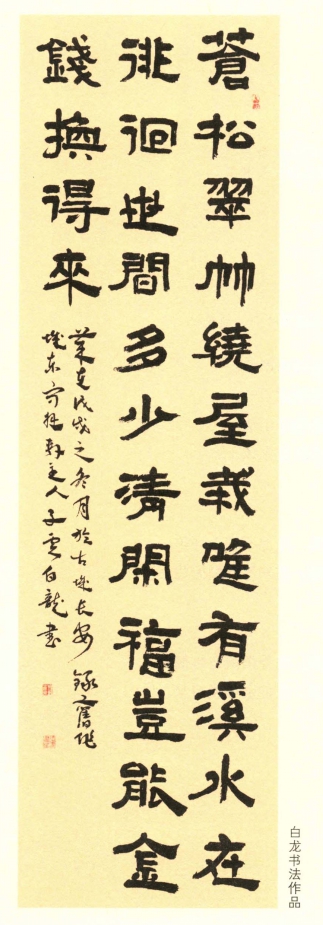 蒼松翠竹繞屋栽唯有溪水在
徘徊世間多少清閑福豈能金
錢換得來
歲在戊戌之冬月於古城長安 錄舊作
城东守拙軒主人子雲白龍書
白龙书法作品